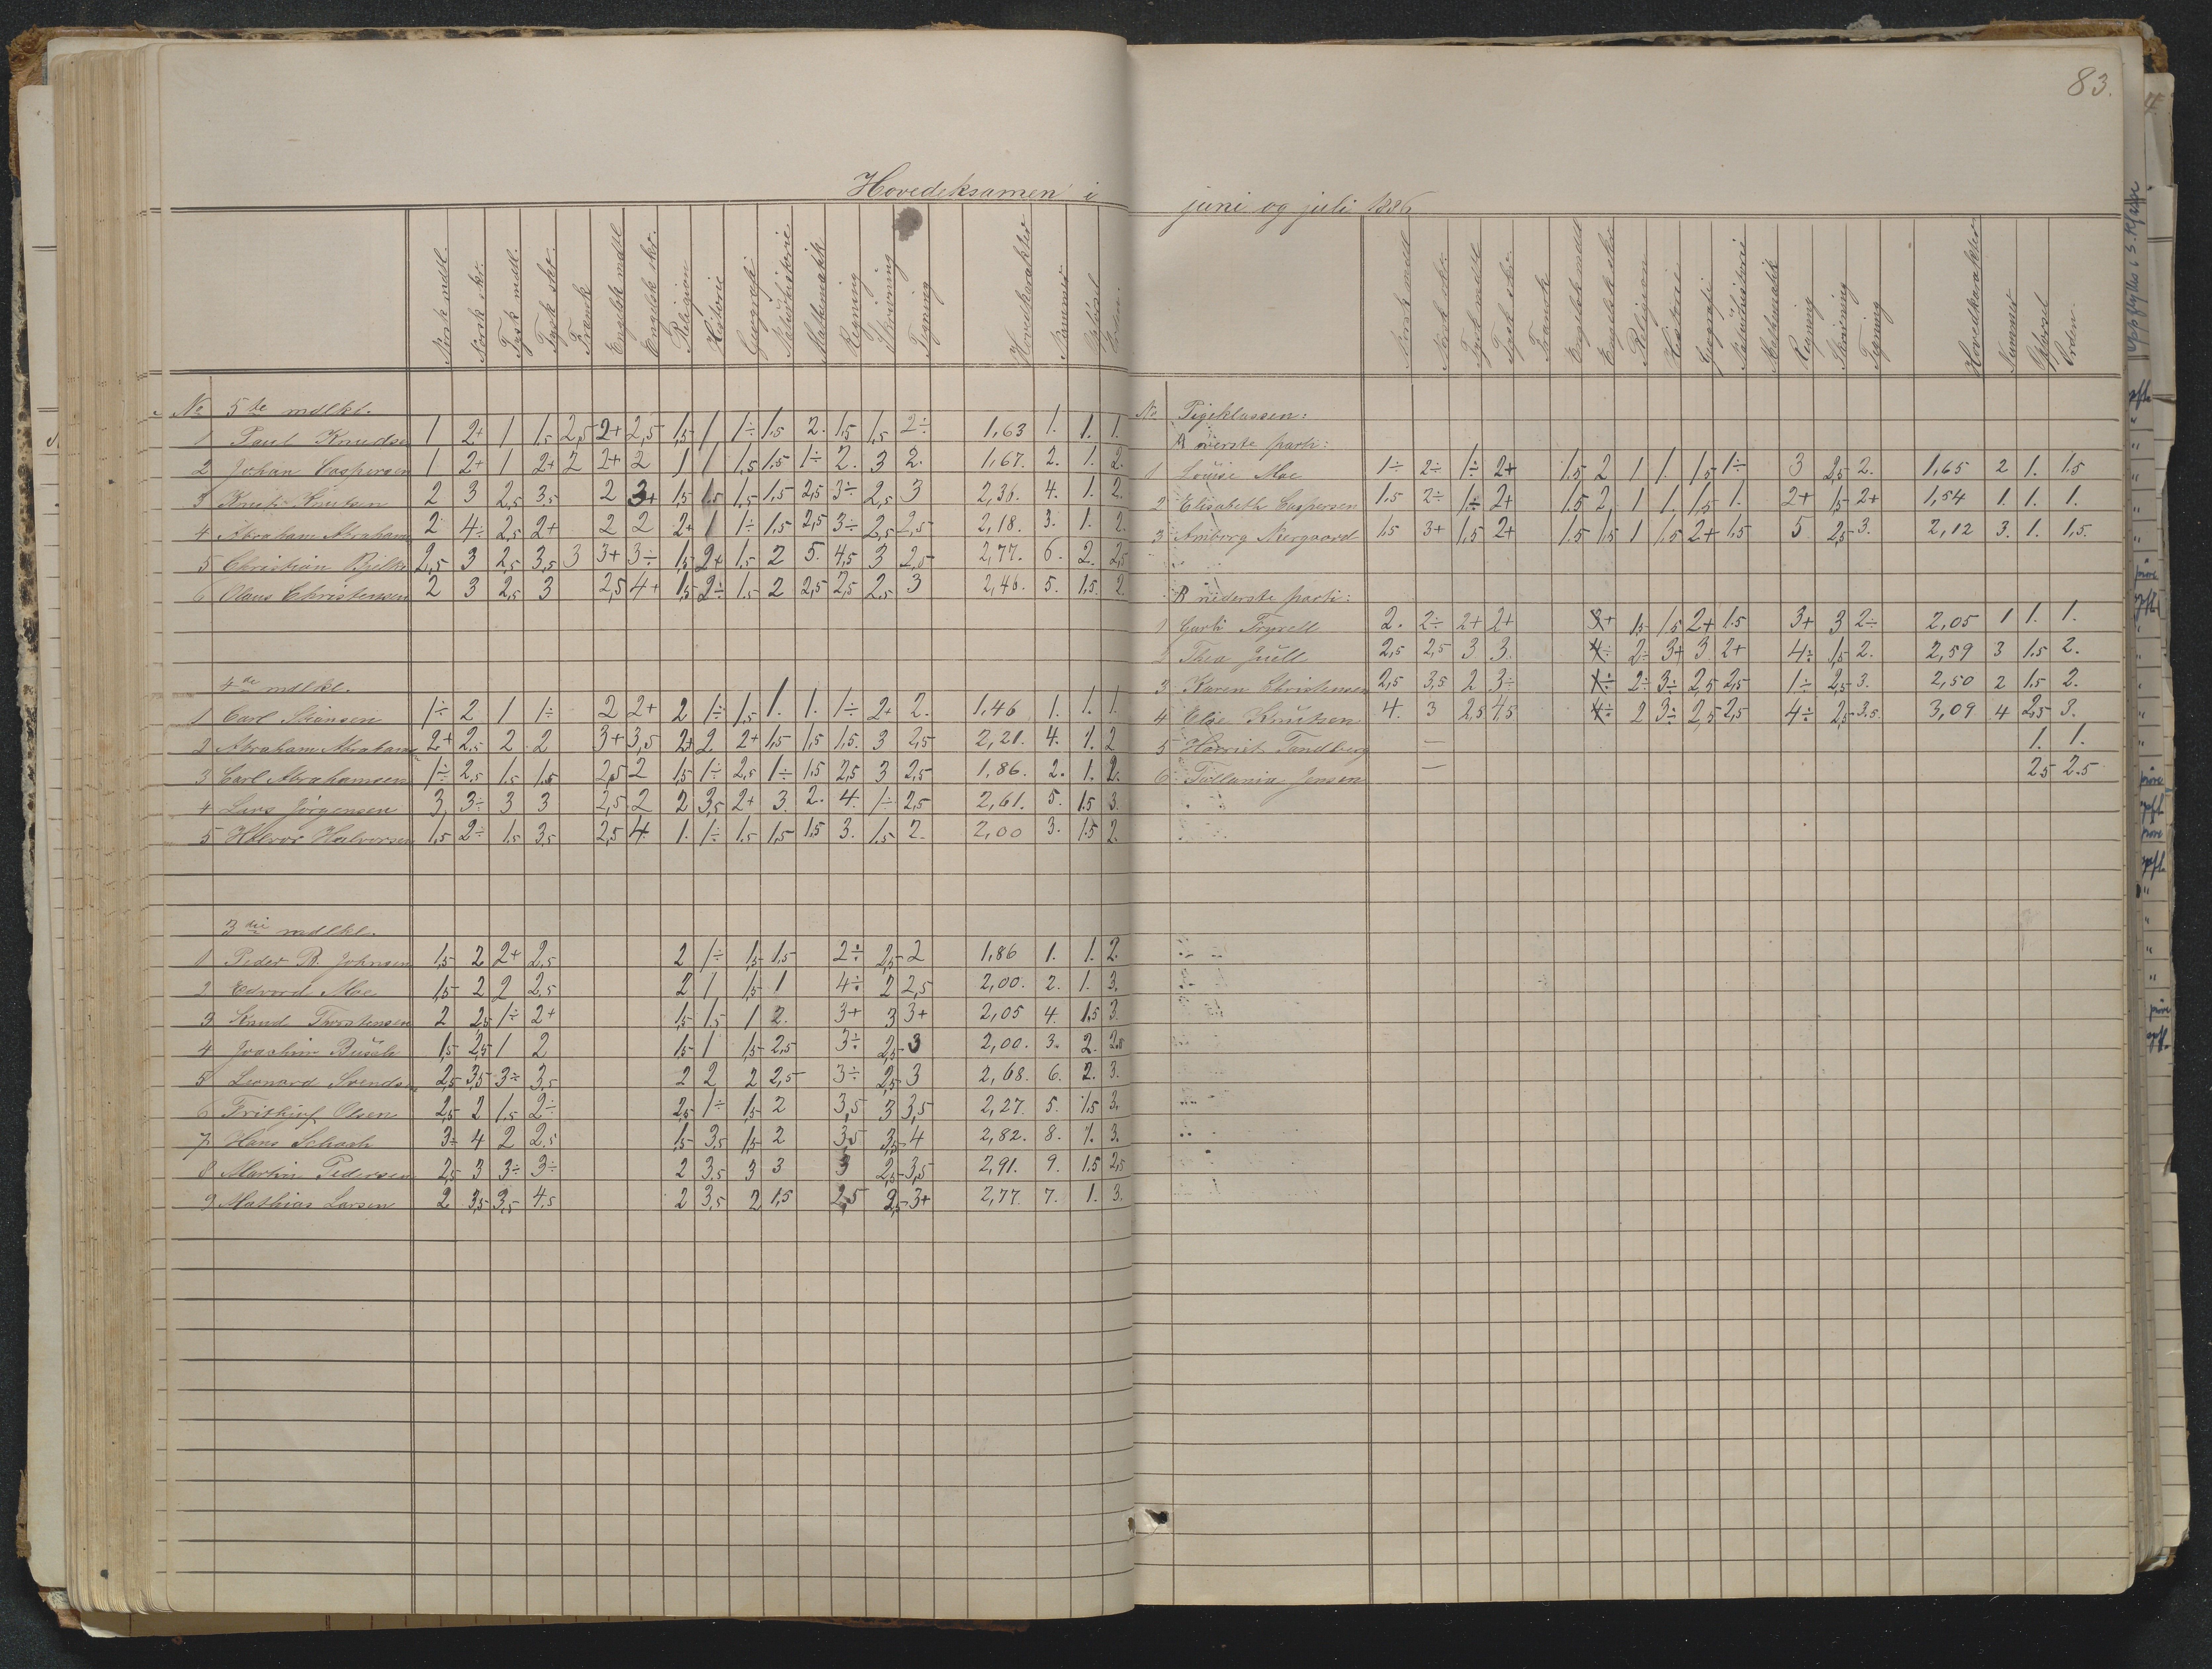 83.
Hovedeksamen i juni og juli 1886
Norsk mdtl. Norsk skr. Tysk mdtl. Tysk skr. Fransk Engelsk mdtl Engelsk skr. Religion Historie Geografi Naturhistorie Mathematik Regning Skrivning Tegning Hovedkarakter Nummer Opførsel Orden.
No 5te mdlkl.
1 Paul Knudsen 1 2+ 1 1,5 2,5 2+ 2,5 1,5 1 1÷ 1,5 2. 1,5 1,5 2÷ 1,63 1. 1. 1.
2 Johan Caspersen 1 2+ 1 2+ 2 2+ 2 1 1 1,5 1,5 1÷ 2. 3 2. 1,67. 2. 1. 2.
3 Knut Knutsen 2 3 2,5 3,5 2 3+ 1,5 1,5 1,5 1,5 2,5 3÷ 2,5 3 2,36. 4. 1. 2.
4 Abraham Abrahams 2 4÷ 2,5 2+ 2 2 2+ 1 1÷ 1,5 2,5 3÷ 2,5 2,5 2,18. 3. 1. 2.
5 Christian Bjelke 2,5 3 2,5 3,5 3 3+ 3÷ 1,5 2+ 1,5 2 5. 4,5 3 2,5 2,77. 6. 2. 2,5
6 Olaus Christensen 2 3 2,5 3 2,5 4+ 1,5 2÷ 1,5 2 2,5 2,5 2,5 3 2,46. 5. 1,5. 2.
4de mdlkl.
1 Carl Sørensen 1÷ 2 1 1÷ 2 2+ 2 1÷ 1,5 1. 1. 1÷ 2+ 2. 1,46 1. 1. 1.
2 Abraham Abrahams 2+ 2,5 2 2 3+ 3,5 2+ 2 2+ 1,5 1,5 1,5. 3 2,5 2,21. 4. 1. 2
3 Carl Abrahamsen 1÷ 2,5 1,5 1,5 2,5 2 1,5 1÷ 2,5 1÷ 1,5 2,5 3 2,5 1,86. 2. 1. 2.
4 Lars Jørgensen 3 3÷ 3 3 2,5 2 2 3,5 2+ 3 2. 4. 1÷ 2,5 2,61. 5. 1,5 3.
5 Halvor Halvorsen 1,5 2÷ 1,5 3,5 2,5 4. 1. 1÷ 1,5 1,5 1,5 3. 1,5 2. 2,00 3. 1,5 2.
3die mdlkl.
1 Peder B. Johnsen 1,5 2 2+ 2,5 2 1÷ 1,5 1,5 2÷ 2,5 2 1,86 1. 1. 2.
2 Edvard Moe 1,5 2 2 2,5 2 1 1,5 1 4÷ 2 2,5 2,00. 2. 1. 3.
3 Knud Thorstensen 2 2,5 1÷ 2+ 1,5 1,5 1 2. 3+ 3 3+ 2,05 4. 1,5 3.
4 Joachim 1,5 2,5 1 2 1,5 1 1,5 2,5 3÷ 2,5 3 2,00. 3. 2. 2,5
5 Leonard Svendsen 2,5 3,5 3÷ 3,5 2 2 2 2,5 3÷ 2,5 3 2,68. 6. 2. 3.
6 Frithjof Olsen 2,5 2 1,5 2÷ 2,5 1÷ 1,5 2 3,5 3 3,5 2,27. 5. 1,5 3.
7 Hans Schach 3÷ 4 2 2,5 1,5 3,5 1,5 2 3,5 3,5 4 2,82. 8. 1. 3.
8 Martin Pedersen 2,5 3 3÷ 3÷ 2 3,5 3 3 3 2,5 3,5 2,91. 9. 1,5 2,5
9 Mathias Larsen 2 3,5 3,5 4,5 2 3,5 2 1,5 2,5 2,5 3+ 2,77. 7. 1. 3.
Norsk mdtl Norsk skr. Tysk mdtl Tysk skr. Fransk Engelsk mdtl Engelsk skr. Religion Historie Geografi Naturhistorie Mathematik Regning Skrivning Tegning Hovedkarakter Nummer Opførsel Orden
No Pigeklassen:
A øverste parti:
1 Louise Moe 1÷ 2÷ 1÷ 2+ 1,5 2 1 1. 1,5 1÷ 3 2,5 2. 1,65 2 1. 1,5
2 Elisabeth Caspersen 1,5 2÷ 1÷ 2+ 1,5 2 1 1. 1,5 1. 2+ 1,5 2+ 1,54 1. 1. 1.
3 Amborg Neergaard 1,5 3+ 1,5 2+ 1,5 1,5 1 1,5 2+ 1,5 5 2,5 3. 2,12 3. 1. 1,5.
B nederste parti:
1 2. 2÷ 2+ 2+ 3+ 1,5 1,5 2+ 1,5 3+ 3 2÷ 2,05 1 1. 1.
2 Thea Juell 2,5 2,5 3 3. 4÷ 2÷ 3+ 3 2+ 4÷ 1,5 2. 2,59 3 1,5 2.
3 Karen Christensen 2,5 3,5 2 3÷ 1÷ 2÷ 3÷ 2,5 2,5 1÷ 2,5 3. 2,50 2 1,5 2.
4 Elise Knutsen 4. 3 2,5 4,5 4÷ 2 3÷ 2,5 2,5 4÷ 2,5 3,5 3,09 4 2,5 3.
5 Harriet Tandberg — 1. 1.
6 Jensen — 2,5 2,5